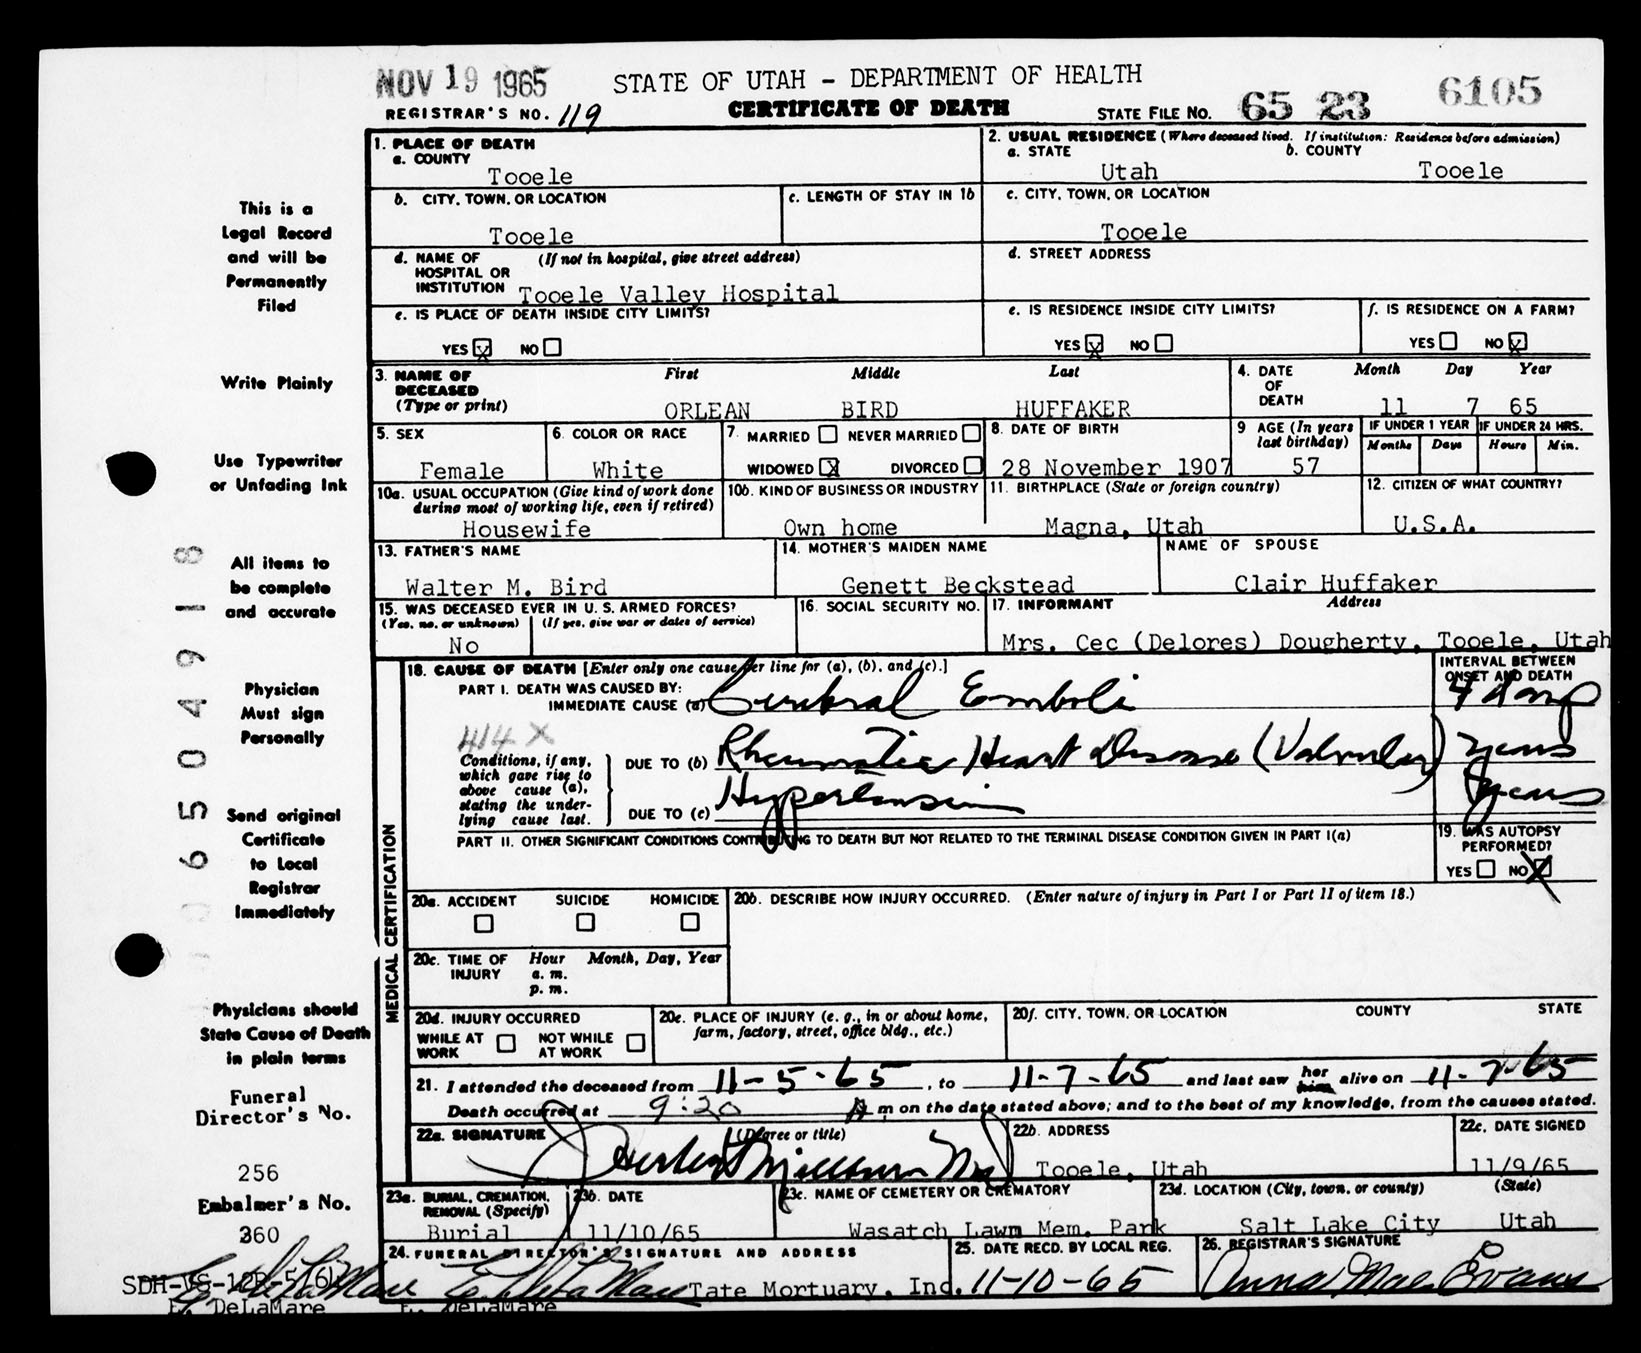 NOV 19 1965
STATE OF UTAH - DEPARTMENT OF HEALTH
6105
REGISTRAR'S NO. 119
CERTIFICATE OF DEATH
STATE FILE NO. 65 23
1. PLACE OF DEATH
a. COUNTY
Tooele
2. USUAL RESIDENCE (Where deceased lived. If institution: Residence before admission)
a. STATE
Utah
b. COUNTY
Tooele
b. CITY, TOWN, OR LOCATION
Tooele
c. LENGTH OF STAY IN 1b
c. CITY, TOWN, OR LOCATION
Tooele
d. NAME OF HOSPITAL OR INSTITUTION
(If not in hospital, give street address)
Tooele Valley Hospital
d. STREET ADDRESS
e. IS PLACE OF DEATH INSIDE CITY LIMITS?
YES X NO
e. IS RESIDENCE INSIDE CITY LIMITS?
YES X NO
f. IS RESIDENCE ON A FARM?
YES NO X
3. NAME OF DECEASED (Type or print)
First Middle Last
ORLEAN BIRD HUFFAKER
4. DATE OF DEATH
Month Day Year
11 7 65
5. SEX
Female
6. COLOR OR RACE
White
7. MARRIED NEVER MARRIED
WIDOWED X DIVORCED
8. DATE OF BIRTH
28 November 1907
9 AGE (In years last birthday)
57
IF UNDER 1 YEAR
Months Days
IF UNDER 24 HRS.
Hours Min.
10a. USUAL OCCUPATION (Give kind of work done during most of working life, even if retired)
Housewife
10b. KIND OF BUSINESS OR INDUSTRY
Own home
11. BIRTHPLACE (State or foreign country)
Magna, Utah
12. CITIZEN OF WHAT COUNTRY?
U.S.A.
13. FATHER'S NAME
Walter M. Bird
14. MOTHER'S MAIDEN NAME
Genett Beckstead
NAME OF SPOUSE
Clair Huffaker
15. WAS DECEASED EVER IN U.S. ARMED FORCES?
(Yes, no, or unknown) (If yes, give war or dates of service)
No
16. SOCIAL SECURITY NO.
17. INFORMANT Address
Mrs. Cec (Delores) Dougherty, Tooele, Utah
18. CAUSE OF DEATH [Enter only one cause per line for (a), (b), and (c).]
INTERVAL BETWEEN ONSET AND DEATH
PART I. DEATH WAS CAUSED BY:
IMMEDIATE CAUSE (a) Cerebral Emboli 4 days
414 X
Conditions, if any, which gave rise to above cause (a), stating the underlying cause last.
DUE TO (b) Rheumatic Heart Disease (Valvular) years
DUE TO (c) Hypertension years
PART II. OTHER SIGNIFICANT CONDITIONS CONTRIBUTING TO DEATH BUT NOT RELATED TO THE TERMINAL DISEASE CONDITION GIVEN IN PART I(a)
19. WAS AUTOPSY PERFORMED?
YES NO X
MEDICAL CERTIFICATION
20a. ACCIDENT SUICIDE HOMICIDE
20b. DESCRIBE HOW INJURY OCCURRED. (Enter nature of injury in Part I or Part II of item 18.)
20c. TIME OF INJURY
Hour Month, Day, Year
a. m.
p. m.
20d. INJURY OCCURRED
WHILE AT WORK NOT WHILE AT WORK
20e. PLACE OF INJURY (e. g., in or about home, farm, factory, street, office bldg., etc.)
20f. CITY, TOWN, OR LOCATION COUNTY STATE
21. I attended the deceased from 11-5-65, to 11-7-65 and last saw her him alive on 11-7-65
Death occurred at 9:20 A m on the date stated above; and to the best of my knowledge, from the causes stated.
22a. SIGNATURE (Degree or title)
22b. ADDRESS
Tooele, Utah
22c. DATE SIGNED
11/9/65
23a. BURIAL, CREMATION, REMOVAL (Specify)
Burial
23b. DATE
11/10/65
23c. NAME OF CEMETERY OR CREMATORY
Wasatch Lawn Mem. Park
23d. LOCATION (City, town, or county) (State)
Salt Lake City Utah
24. FUNERAL DIRECTOR'S SIGNATURE AND ADDRESS
Tate Mortuary, Inc.
E. DeLaMare
25. DATE RECD. BY LOCAL REG.
11-10-65
26. REGISTRAR'S SIGNATURE
Anna Mae Evans
This is a
Legal Record
and will be
Permanently
Filed
Write Plainly
Use Typewriter
or Unfading Ink
All items to
be complete
and accurate
Physician
Must sign
Personally
Send original
Certificate
to Local
Registrar
Immediately
Physicians should
State Cause of Death
in plain terms
Funeral
Director's No.
256
Embalmer's No.
360
E. DeLaMare